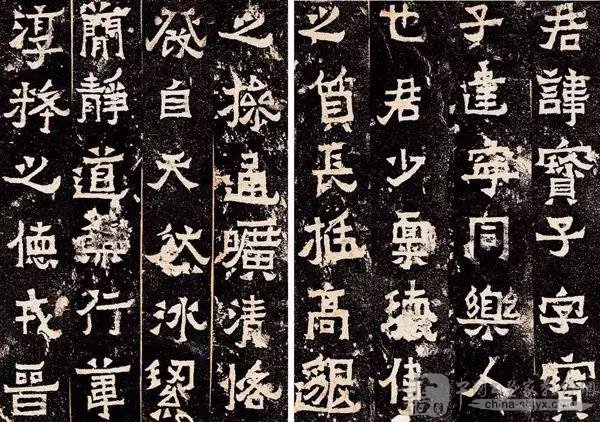 君諱寶子字寶
子建寧同樂人
也君少稟瓌偉
之質長挺高邈
之操通曠清恪
發自天然冰潔
簡靜道兼行葦
淳粹之德戎晉